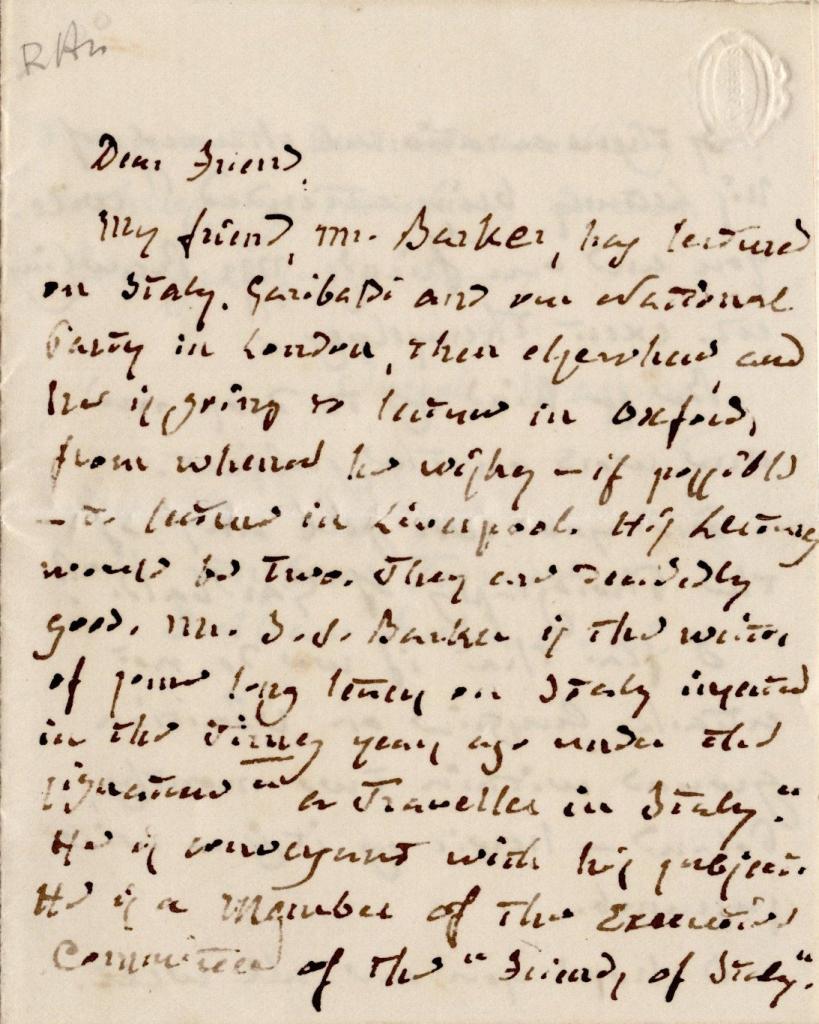 Dear Friend,
My friend, Mr. Barker, has lectured
on Italy, Garibaldi and our National
Party in London, then elsewhere, and
he is going to lecture in Oxford,
from where he wishes – if possible
– to lecture in Liverpool. His Lectures
would be two. They are decidedly
good. Mr. J. S. Barker is the writer
of some long letters on Italy inserted
in the Times years ago under the
signature "a Traveller in Italy."
He is conversant with his subject.
He is a Member of the Executive
Committee of the "Friends of Italy".